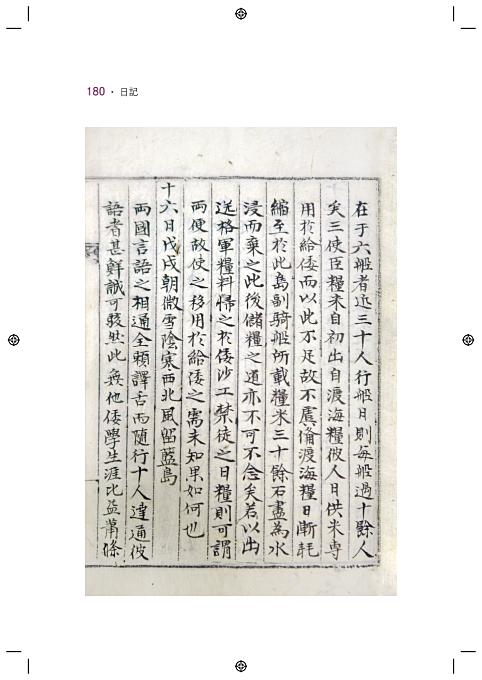 180 · 日記
在于六船者近三十人行船日則每船過十餘人
矣三使臣糧米自初出自渡海糧彼人日供米専
用於給倭而以此不足故不虞備渡海糧日漸耗
縮至於此島副騎船所載糧米三十餘石盡為水
浸而棄之此後儲糧之道亦不可不念矣若以出
送格軍糧料歸之於倭沙工禁徒之日糧則可謂
兩便故使之移用於給倭之需未知果如何也
十六日戊戌朝微雪陰寒西北風留藍島
兩國言語之相通全賴譯舌而隨行十人達通彼
語者甚鮮誠可駭然此無他倭學生涯比益蕭條